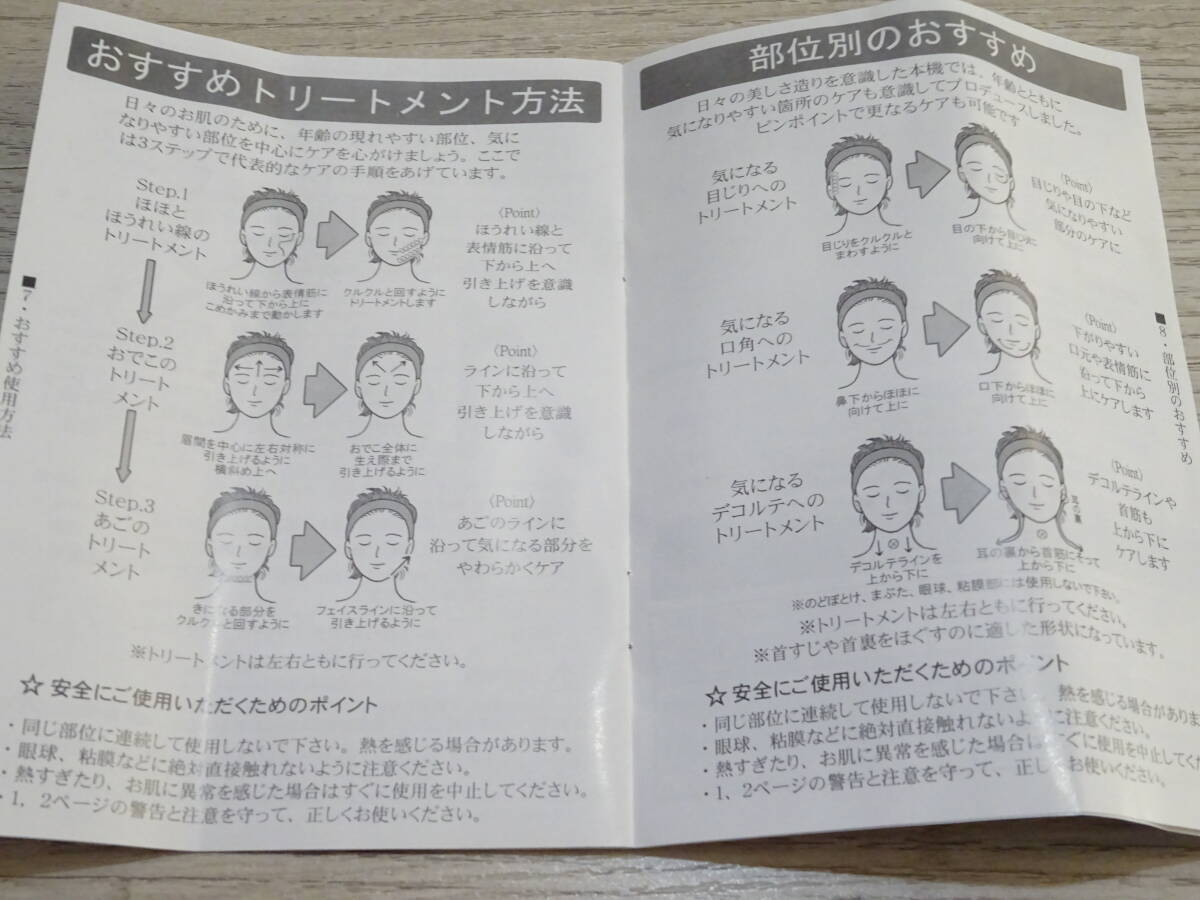 おすすめトリートメント方法
日々のお肌のために、年齢の現れやすい部位、気に
なりやすい部位を中心にケアを心がけましょう。ここで
は3ステップで代表的なケアの手順をあげています。
Step.1
ほほと
ほうれい線の
トリートメント
ほうれい線から表情筋に
沿って下から上に
こめかみまで動かします
クルクルと回すように
トリートメントします
〈Point〉
ほうれい線と
表情筋に沿って
下から上へ
引き上げを意識
しながら
Step.2
おでこの
トリート
メント
眉間を中心に左右対称に
引き上げるように
横斜め上へ
おでこ全体に
生え際まで
引き上げるように
〈Point〉
ラインに沿って
下から上へ
引き上げを意識
しながら
Step.3
あごの
トリート
メント
きになる部分を
クルクルと回すように
フェイスラインに沿って
引き上げるように
〈Point〉
あごのラインに
沿って気になる部分を
やわらかくケア
※トリートメントは左右ともに行ってください。
☆安全にご使用いただくためのポイント
・同じ部位に連続して使用しないで下さい。熱を感じる場合があります。
・眼球、粘膜などに絶対直接触れないように注意ください。
・熱すぎたり、お肌に異常を感じた場合はすぐに使用を中止してください。
・1、2ページの警告と注意を守って、正しくお使いください。
■7・おすすめ使用方法
部位別のおすすめ
日々の美しさ造りを意識した本機では、年齢とともに
気になりやすい箇所のケアも意識してプロデュースしました。
ピンポイントで更なるケアも可能です
気になる
目じりへの
トリートメント
目じりをクルクルと
まわすように
目の下から目じりに
向けて上に
〈Point〉
目じりや目の下など
気になりやすい
部分のケアに
気になる
口角への
トリートメント
鼻下からほほに
向けて上に
口下からほほに
向けて上に
〈Point〉
下がりやすい
口元や表情筋に
沿って下から
上にケアします
気になる
デコルテへの
トリートメント
デコルテラインを
上から下に
耳の裏
耳の裏から首筋にそって
上から下に
〈Point〉
デコルテラインや
首筋も
上から下に
ケアします
※のどぼとけ、まぶた、眼球、粘膜部には使用しないで下さい。
※トリートメントは左右ともに行ってください。
※首すじや首裏をほぐすのに適した形状になっています。
☆安全にご使用いただくためのポイント
・同じ部位に連続して使用しないで下さい。熱を感じる場合がありま
・眼球、粘膜などに絶対直接触れないように注意ください。
・熱すぎたり、お肌に異常を感じた場合はすぐに使用を中止してくだ
・1、2ページの警告と注意を守って、正しくお使いください。
■8・部位別のおすすめ